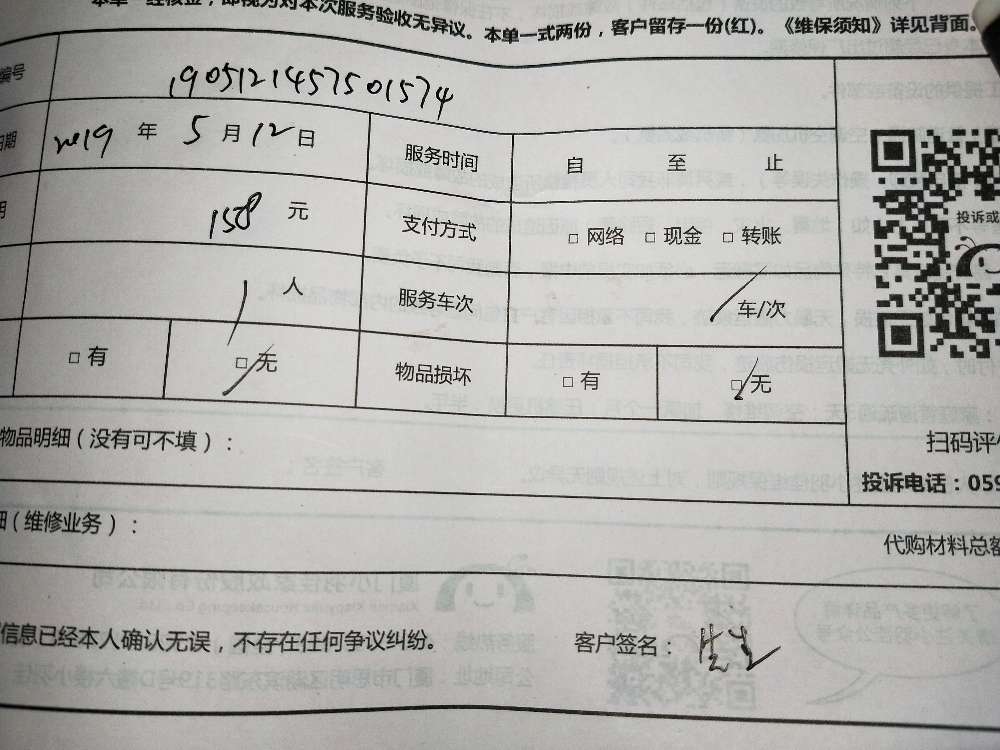 本单一经核验，即视为对本次服务验收无异议。本单一式两份，客户留存一份(红)。《维保须知》详见背面。
编号 1905121457501574
日期 2019 年 5 月 12 日 服务时间 自 至 止
158 元 支付方式 □ 网络 □ 现金 □ 转账
投诉或
1 人 服务车次 / 车/次
□ 有 □ 无 物品损坏 □ 有 □ 无
物品明细（没有可不填）：
扫码评价
投诉电话：059
细（维修业务）：
代购材料总额
信息已经本人确认无误，不存在任何争议纠纷。 客户签名：